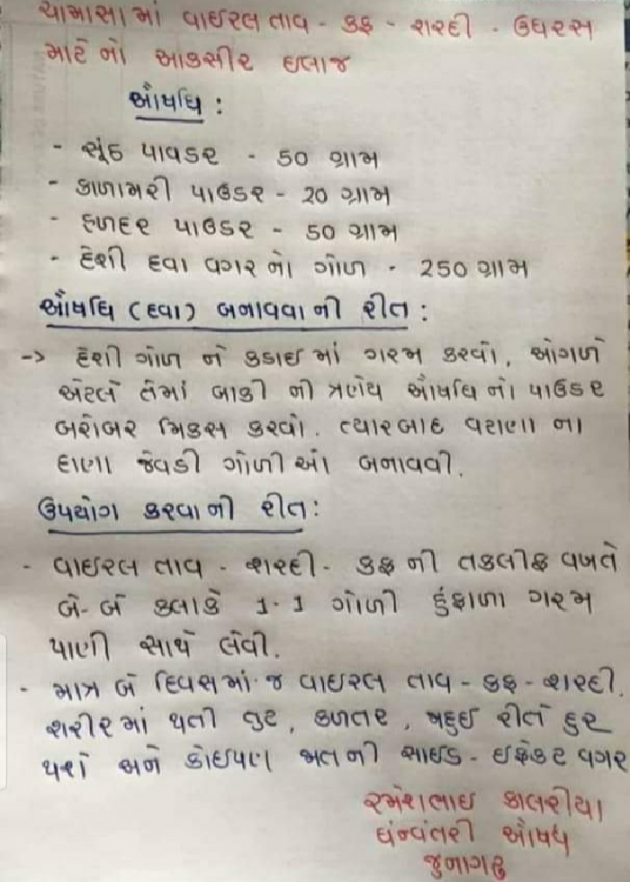 ચોમાસા માં વાઇરલ તાવ - કફ - શરદી - ઉધરસ
માટે નો અકસીર ઇલાજ
ઔષધિ :
- સૂંઠ પાવડર - 50 ગ્રામ
- કાળામરી પાઉડર - 20 ગ્રામ
- હળદર પાઉડર - 50 ગ્રામ
- દેશી દવા વગર નો ગોળ - 250 ગ્રામ
ઔષધિ (દવા) બનાવવા ની રીત :
-> દેશી ગોળ ને કડાઇ માં ગરમ કરવો, ઓગળે
એટલે તેમાં બાકી ની ત્રણેય ઔષધિ નો પાઉડર
બરોબર મિકસ કરવો. ત્યારબાદ વટાણા ના
દાણા જેવડી ગોળીઓ બનાવવી.
ઉપયોગ કરવાની રીત :
- વાઇરલ તાવ - શરદી - કફ ની તકલીફ વખતે
બે-બે કલાકે 1-1 ગોળી હુંફાળા ગરમ
પાણી સાથે લેવી.
- માત્ર બે દિવસમાં જ વાઇરલ તાવ - કફ - શરદી,
શરીર માં થતી તુટ, કળતર, રીતે દુર
થશે અને કોઇપણ જાતની સાઇડ - ઇફેકટ વગર
રમેશભાઇ કાલરીયા
ધન્વંતરી ઔષધ
જુનાગઢ